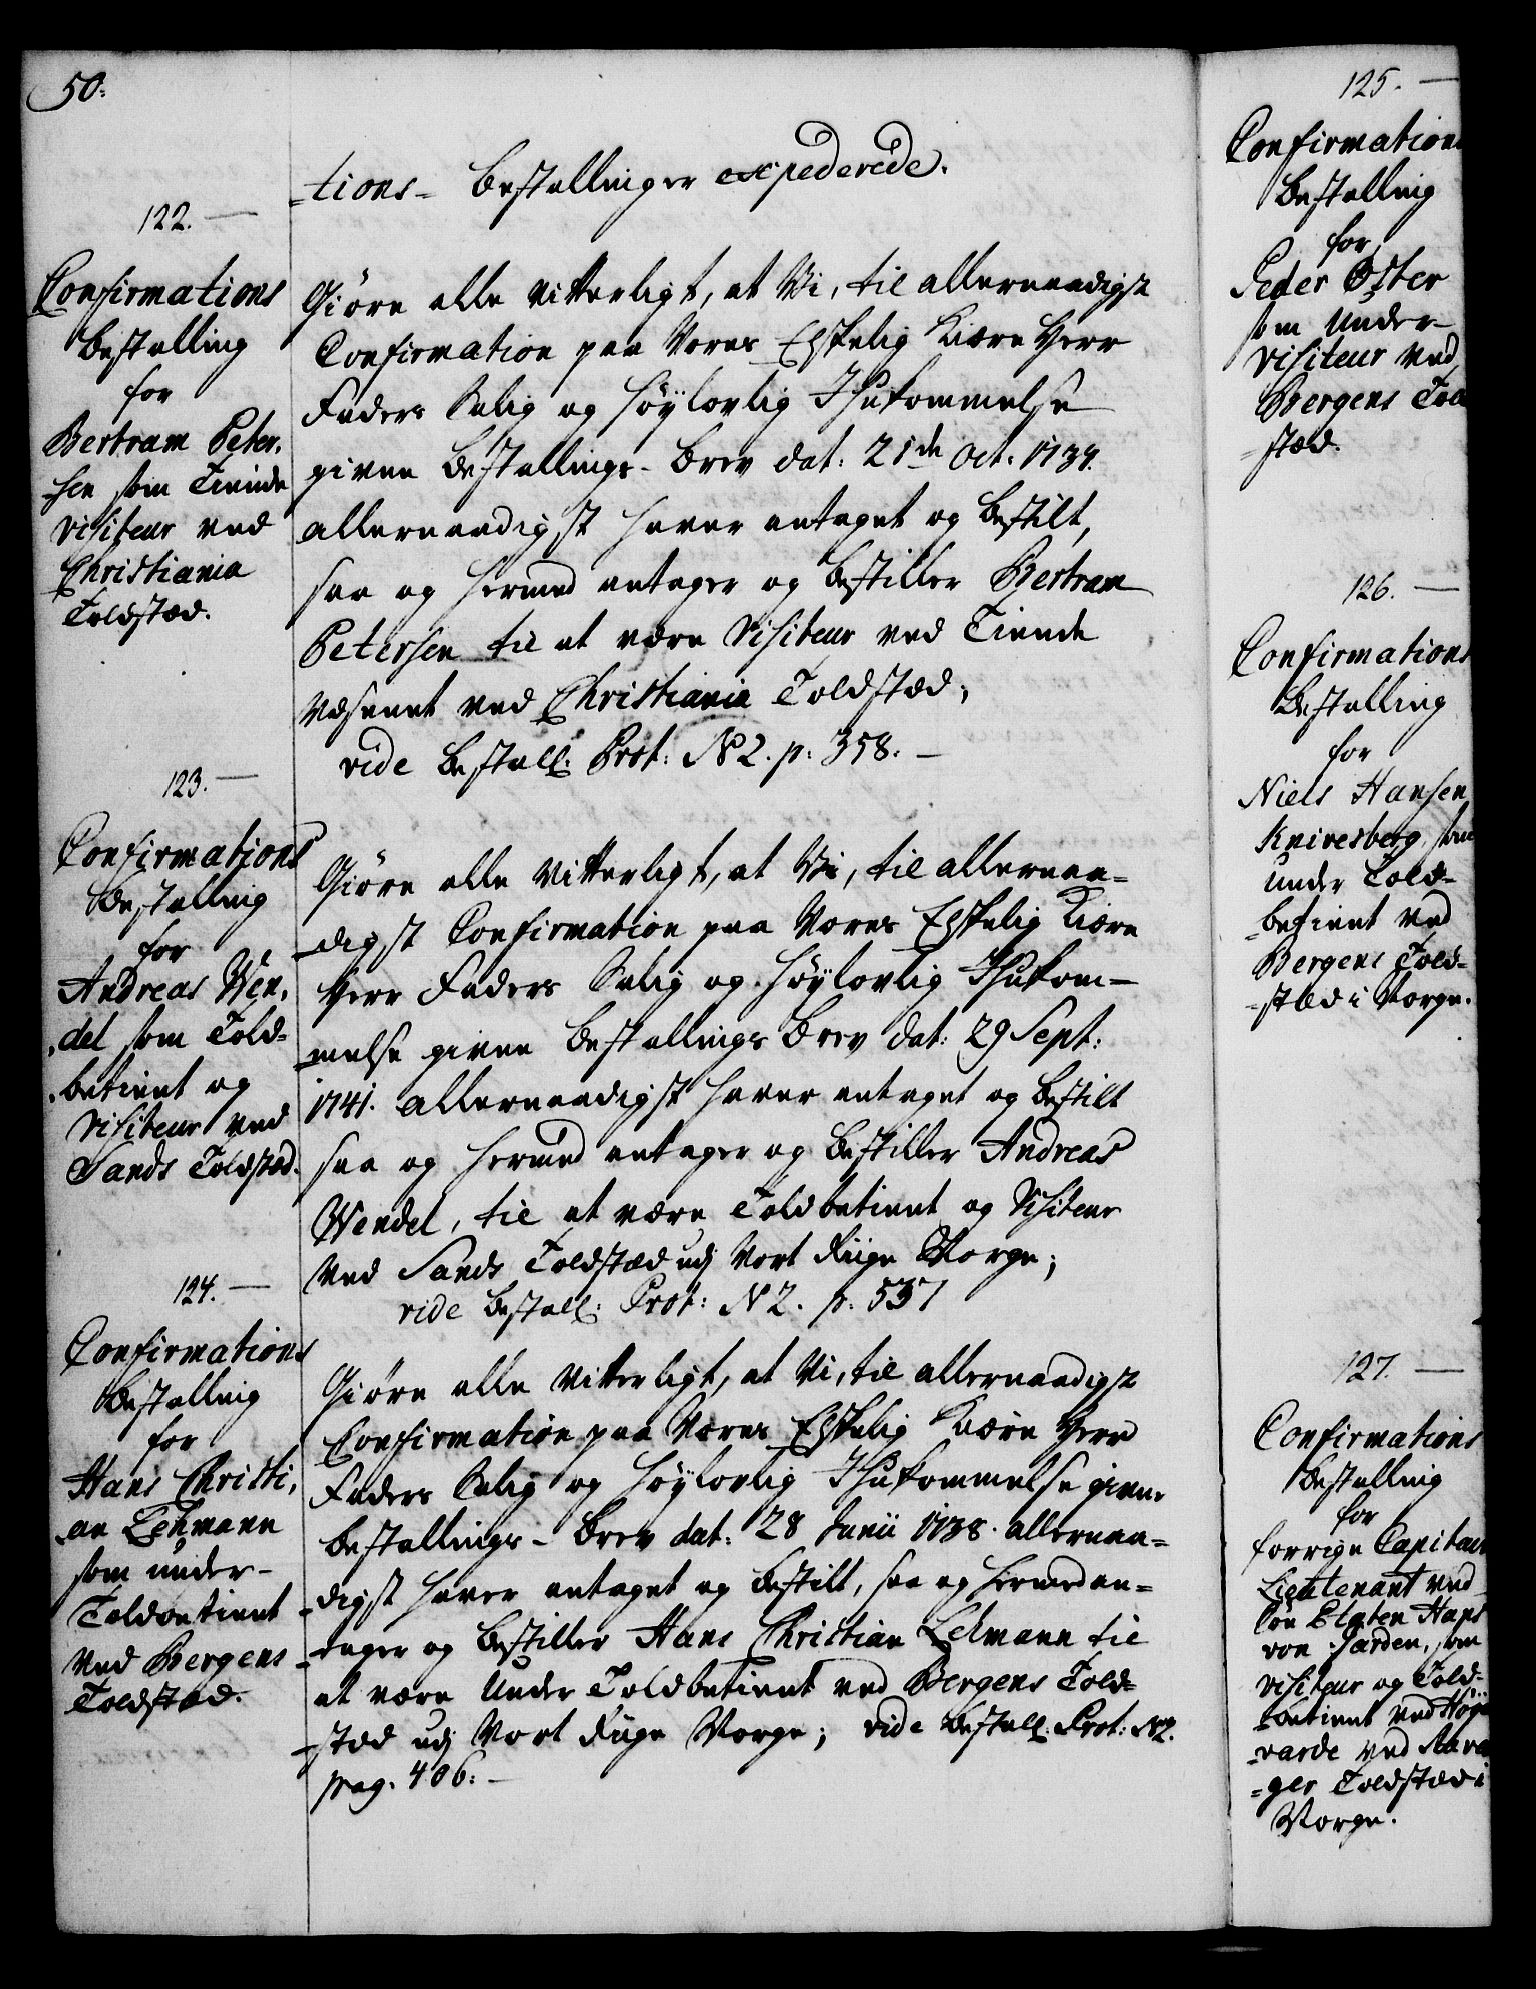 50.
-tions- Bestallinger expederede.
122.
Confirmations
Bestalling
for
Bertram Peter,
-sen som Tiende
Visiteur ved
Christiania
Toldstæd.
Giöre alle Vitterligt, at Vi, til allernaadigst
Confirmation paa Vores Elskelig Kiære Herr
Faders Salig og Höylovlig Ihukommelse
givne Bestallings- Brev dat: 21de Oct. 1734.
allernaadigst haver antaget og bestilt,
saa og hermed antager og bestiller Bertram
Petersen til at være Visiteur ved Tiende
Væsenet ved Christiania Toldstæd;
vide Bestall: Prot: N2. p: 358.
123.
Confirmations
Bestalling
for
Andreas Wen,
,del som Told-
,betient og
Visiteur ved
Sands Toldstæd.
Giöre alle Vitterligt, at Vi, til allernaa-
-digst Confirmation paa Vores Elskelig Kiære
Herr Faders Salig og Höylovlig Ihukom-
-melse givne Bestallings Brev dat: 29 Sept:
1741. allernaadigst haver antaget og bestilt
saa og hermed antager og bestiller Andreas
Wendel, til at være Toldbetient og Visiteur
Ved Sands Toldstæd udj Vort Riige Norge;
vide Bestall: Prot: N2. p: 537
124.
Confirmations
Bestalling
for
Hans Christi,
,an Lehmann
som under-
Toldbetient
Ved Bergens
Toldstæd.
Giöre alle Vitterligt, at Vi, til allernaadigst
Confirmation paa Vores Elskelig Kiære Herr
Faders Salig og Höylovlig Ihukommelse givne
Bestallings- Brev dat: 28 Junii 1738. allernaa-
-digst haver antaget og bestilt, saa og hermed an-
-tager og bestiller Hans Christian Lehmann til
at være Under Toldbetient ved Bergens Told-
-stæd udj Vort Riige Norge; vide Bestall: Prot: N2.
pag. 406.
125.
Confirmations
Bestalling
for
Peder Oster
som Under-
visiteur ved
Bergens Told
-stæd.
126.
Confirmations
Bestalling
for
Niels Hansen
Knivesberg som
Under Told-
-betient ved
Bergens Told-
-stæd i Norge.
127.
Confirmations
Bestalling
for
forrige Capitain
Lieutenant ved
Söe Etaten Hans
von Sarden, som
Visiteur og Told-
-betient ved Høye
-varde ved
-ger Toldstæd i
Norge.